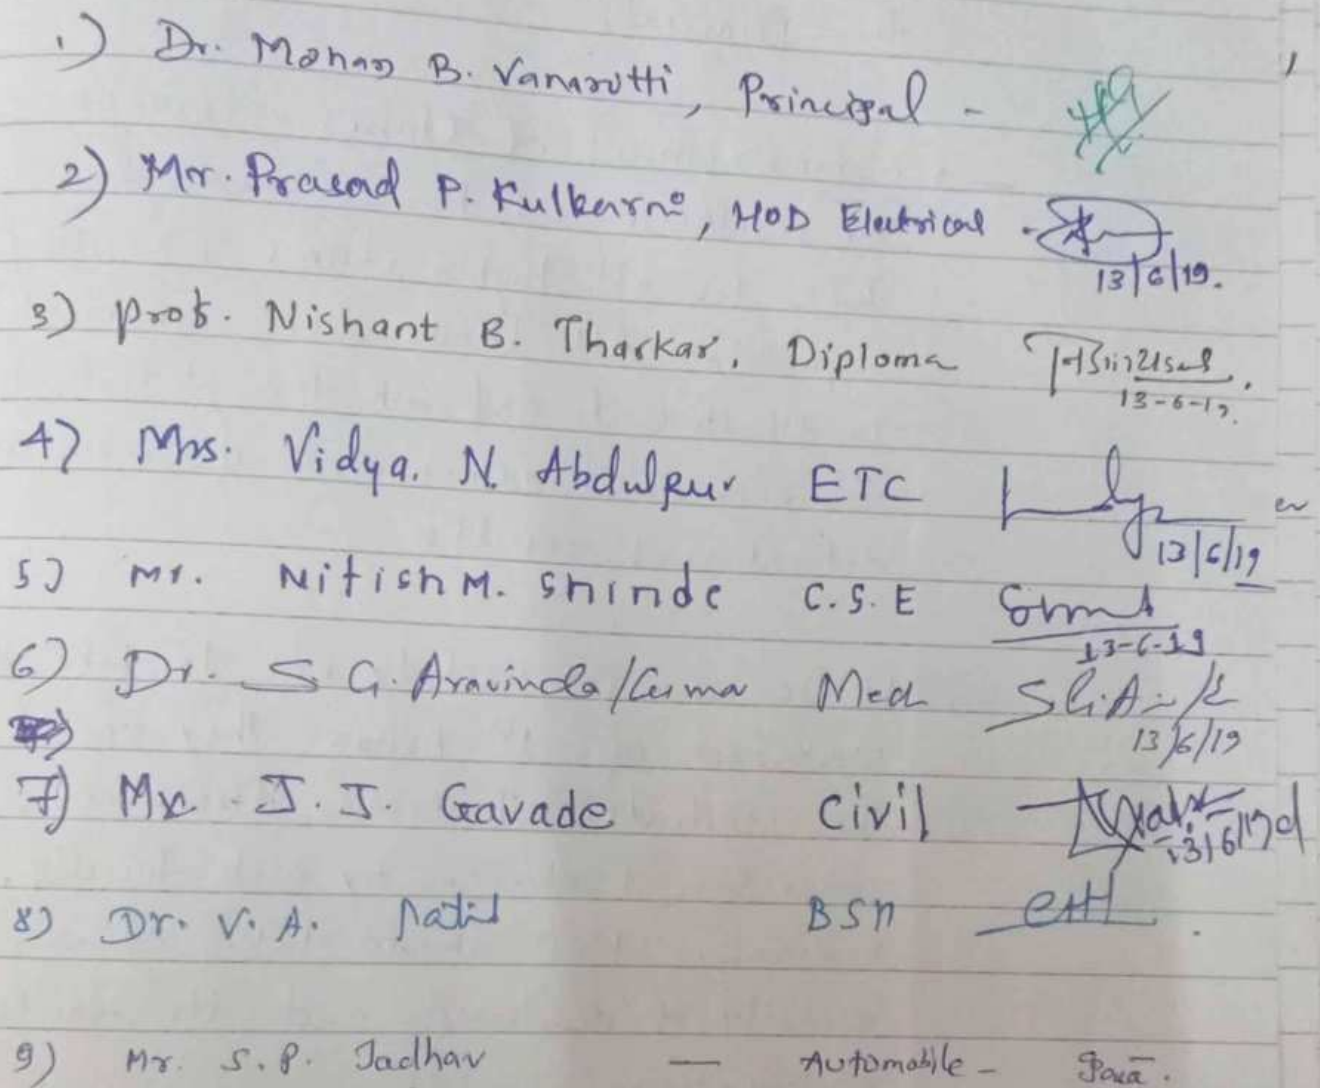 1) Dr. Mohan B. Vanarotti, Principal -
2) Mr. Prasad P. Kulkarni, HOD Electrical -
13/6/19.
3) Prof. Nishant B. Tharkar, Diploma
13-6-19.
4) Mrs. Vidya. N. Abdulpur ETC
13/6/19
5) Mr. Nitish M. Shinde C.S.E
13-6-19
6) Dr. S G. Aravinda Kuma Mech
13/6/19
7) Mr. J. J. Gavade Civil
13/6/19
8) Dr. V. A. Patil BSH
9) Mr. S. P. Jadhav — Automobile -